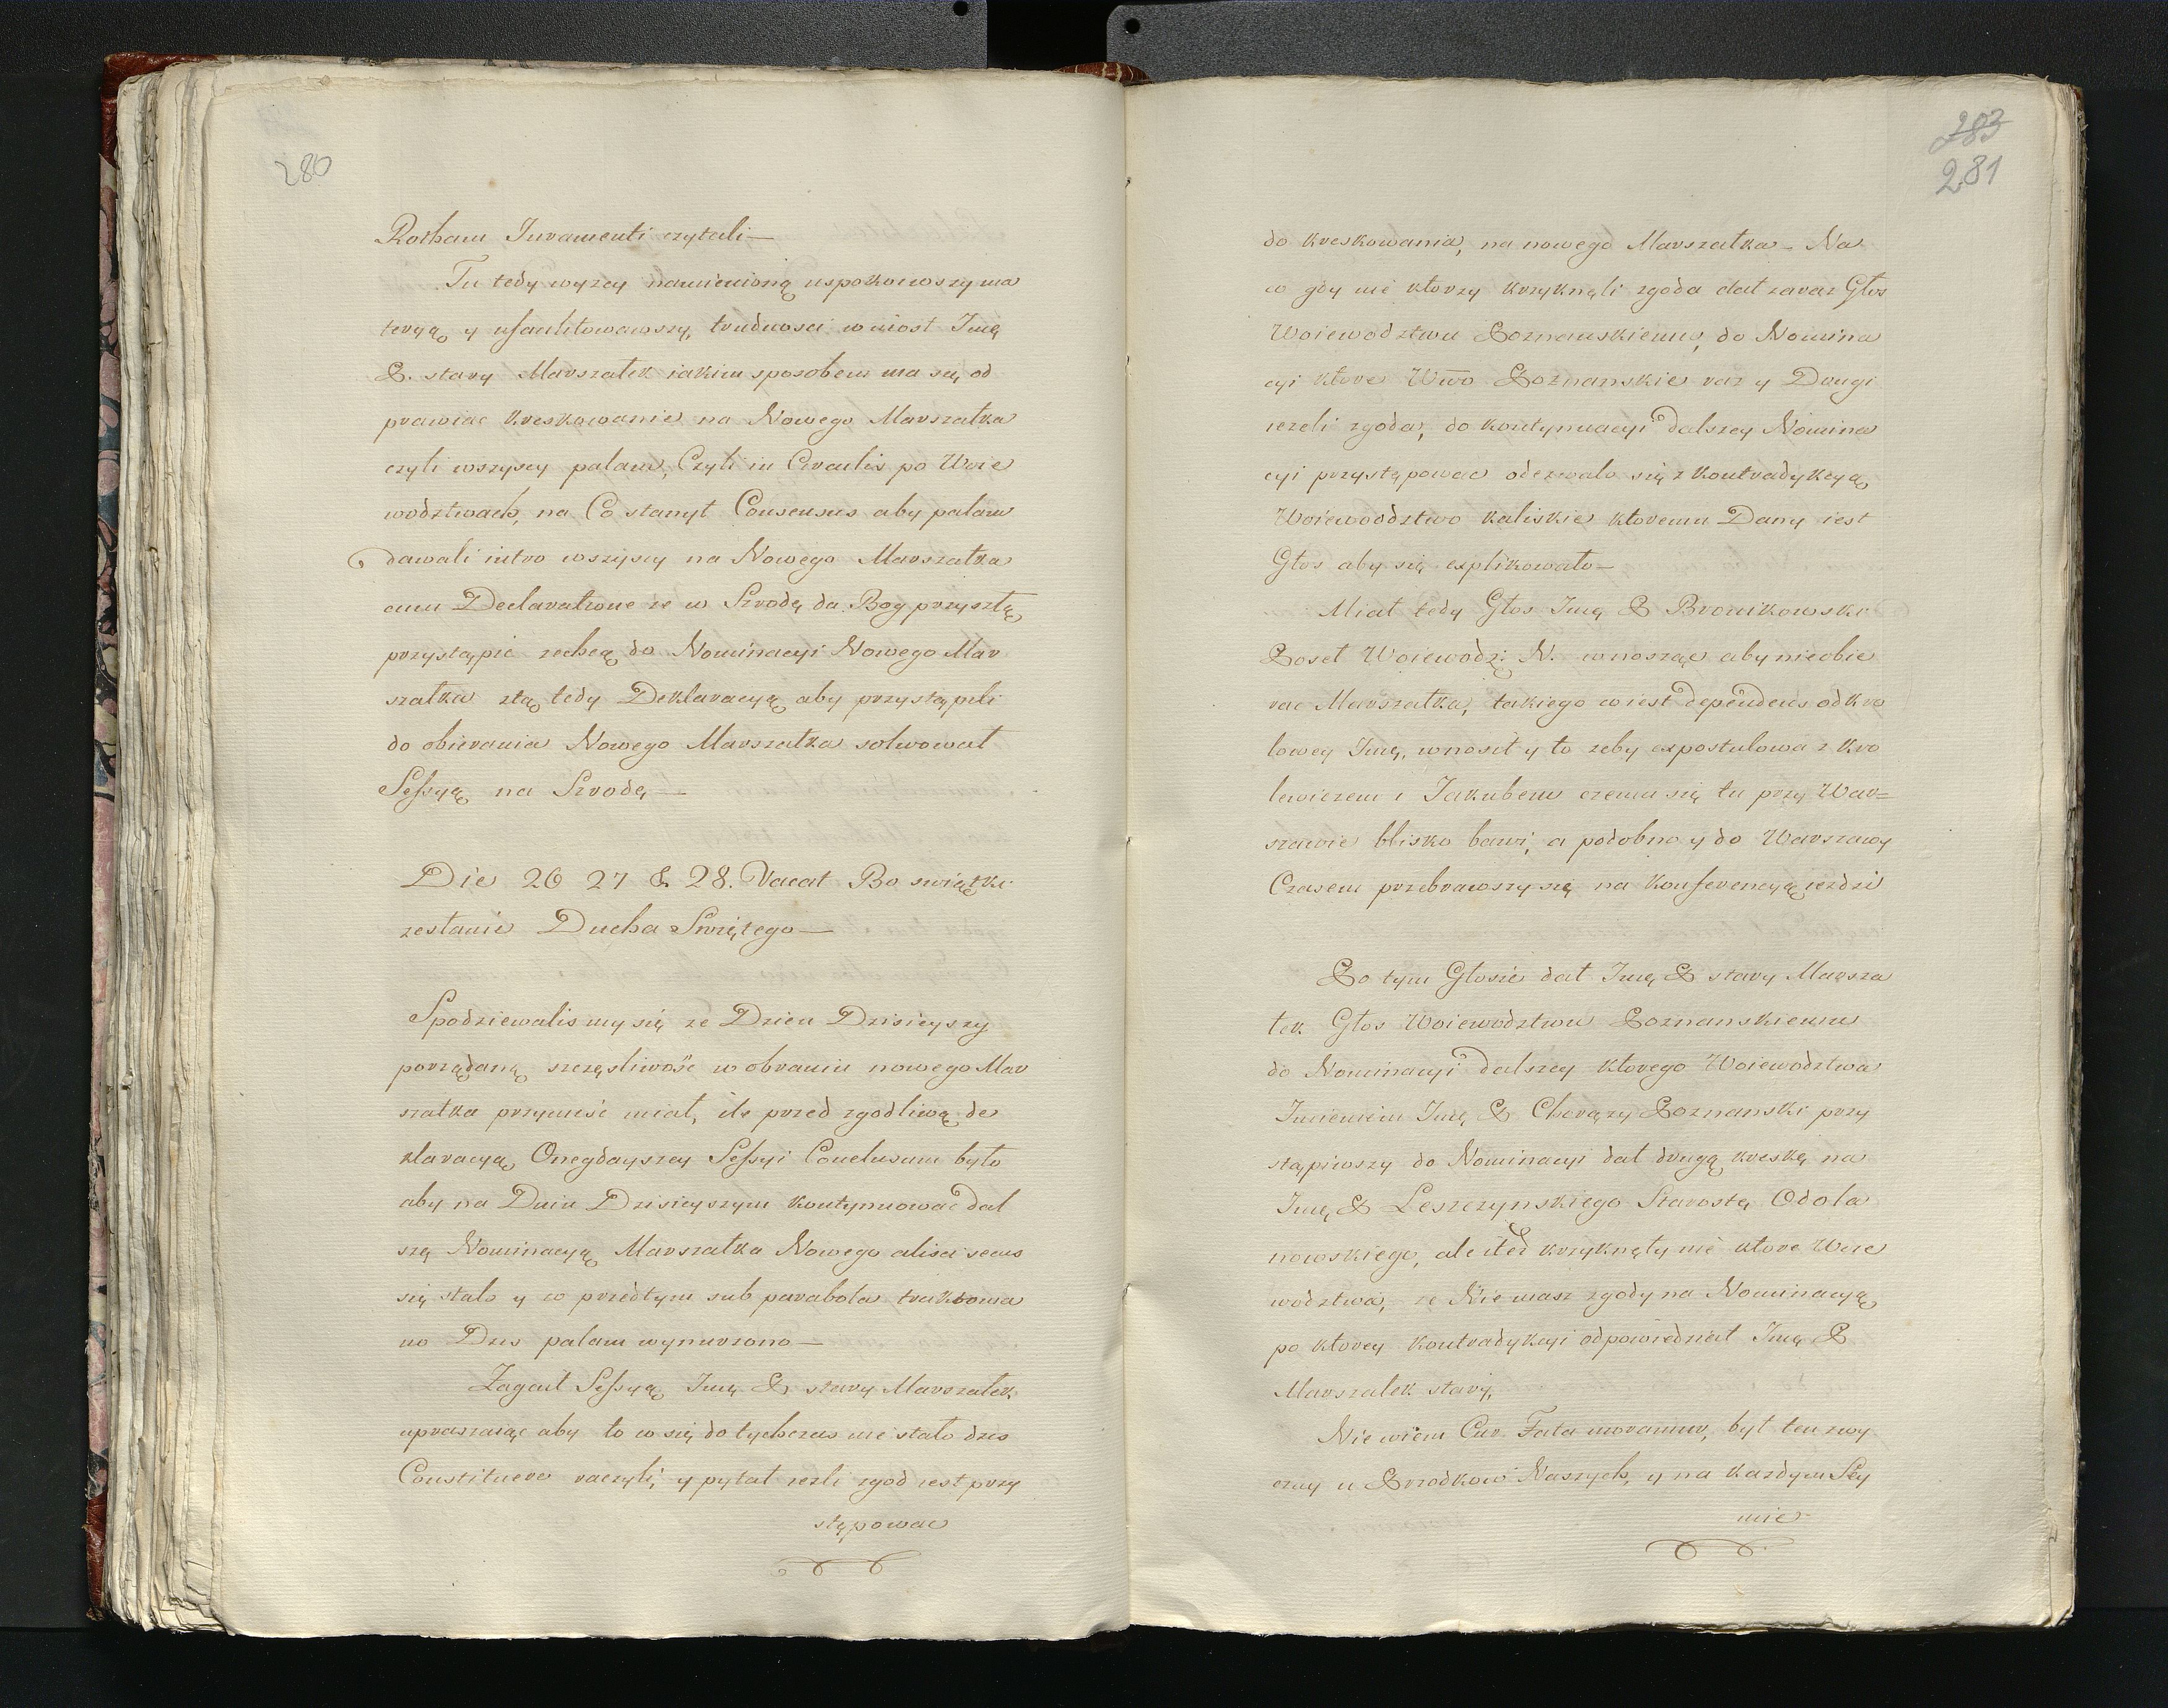 280
Rotham Juramenti czytali—
Tu tedy wyzey namienioną uspokoiwszy ma
teryą y usacilitowawszy, trudnosci wniost Jmę
P. stary Marszatek iakim sposobem ma się od
prawiac kreskowanie na Nowego Marszatka
czyli wszyscy palam, Czyli in Circulis po Woie
wodztwach, na Co stanyt Consensus aby palam
dawali iutro wszyscy na Nowego Marszatka
amu Declaratione ze w Srzodę da Bog przysztą
przystąpic zechcą do Nominacyi Nowego Mar
szatka ztą tedy Deklaracyą aby przystąpili
do obierania Nowego Marszatka solwowat
Sessyą na Srzodę—
Die 26 27 & 28. Vacat Bo swiątki
zestanie Ducha Swiętego—
Spodziewalismy się ze Dzien Dzisieyszy
porządaną szczęsliwość w obraniu nowego Mar
szatka przyniesc miat, ile przed zgodliwą de
klaracyą Onegdayszey Sessyi Conclusum było
aby na Dniu Dzisieyszym kontynuowac dal
szą Nominacyą Marszatka Nowego alisci secus
się stało y w przedtym sub parabola traktowa
no Dzis palam wynurzono—
Zagait Sessyą Jmę P. stary Marszatek
upraszaiąc aby to co się do tychczas nie stało dzis
Constituere raczyli, y pytat iezli zgod iest przy
stępowac
283
281
do kreskowania, na nowego Marszatka – Na
co gdy nie ktorzy krzyknęli zgoda dat zaraz Głos
Woiewodztwu Poznanskiemu, do Nomina
cyi ktore Wwo Poznanskie raz y Drugi
iezeli zgoda, do kontynuacyi dalszey Nomina
cyi przystępowac odezwało się z kontradykcyą
Woiewoodztwo kaliskie ktoremu Dany iest
Głos aby się explikowało—
Miat tedy Głos Jmę P Bronikowski
Poset Woiewodz: N. wnosząc aby nie obie
rac Marszatka, takiego co iest dependens od kro
lowey Jmę, wnosit y to zeby expostulowa z kro
lewiczem i Jakubem czemu się tu przy War=
szawie blisko bawi, a podobno y do Warszawy
Czasem przebrawszy się na konferencyą iezdzi
Po tym Głosie dat Jmę P stary Marsza
tek Głos Woiewodztwu Poznanskiemu
do Nominacyi dalszey ktorego Woiewodztwa
Imieniem Jmę P Chorązy Poznanski przy
stąpiwszy do Nominacyi dat drugą kreskę na
Jmę P Leszczynskiego Starostę Odola
nowskiego, ale itez krzyknęty nie ktore Woie
wodztwa, ze Nie masz zgody na Nominacyą
po ktorey kontradykcyi odpowiedziat Jmę P
Marszalek stary,
Nie wiem Cur Fata moramur, byt ten zwy
czay u Przodkow Naszych, y na kazdym Sey
mie